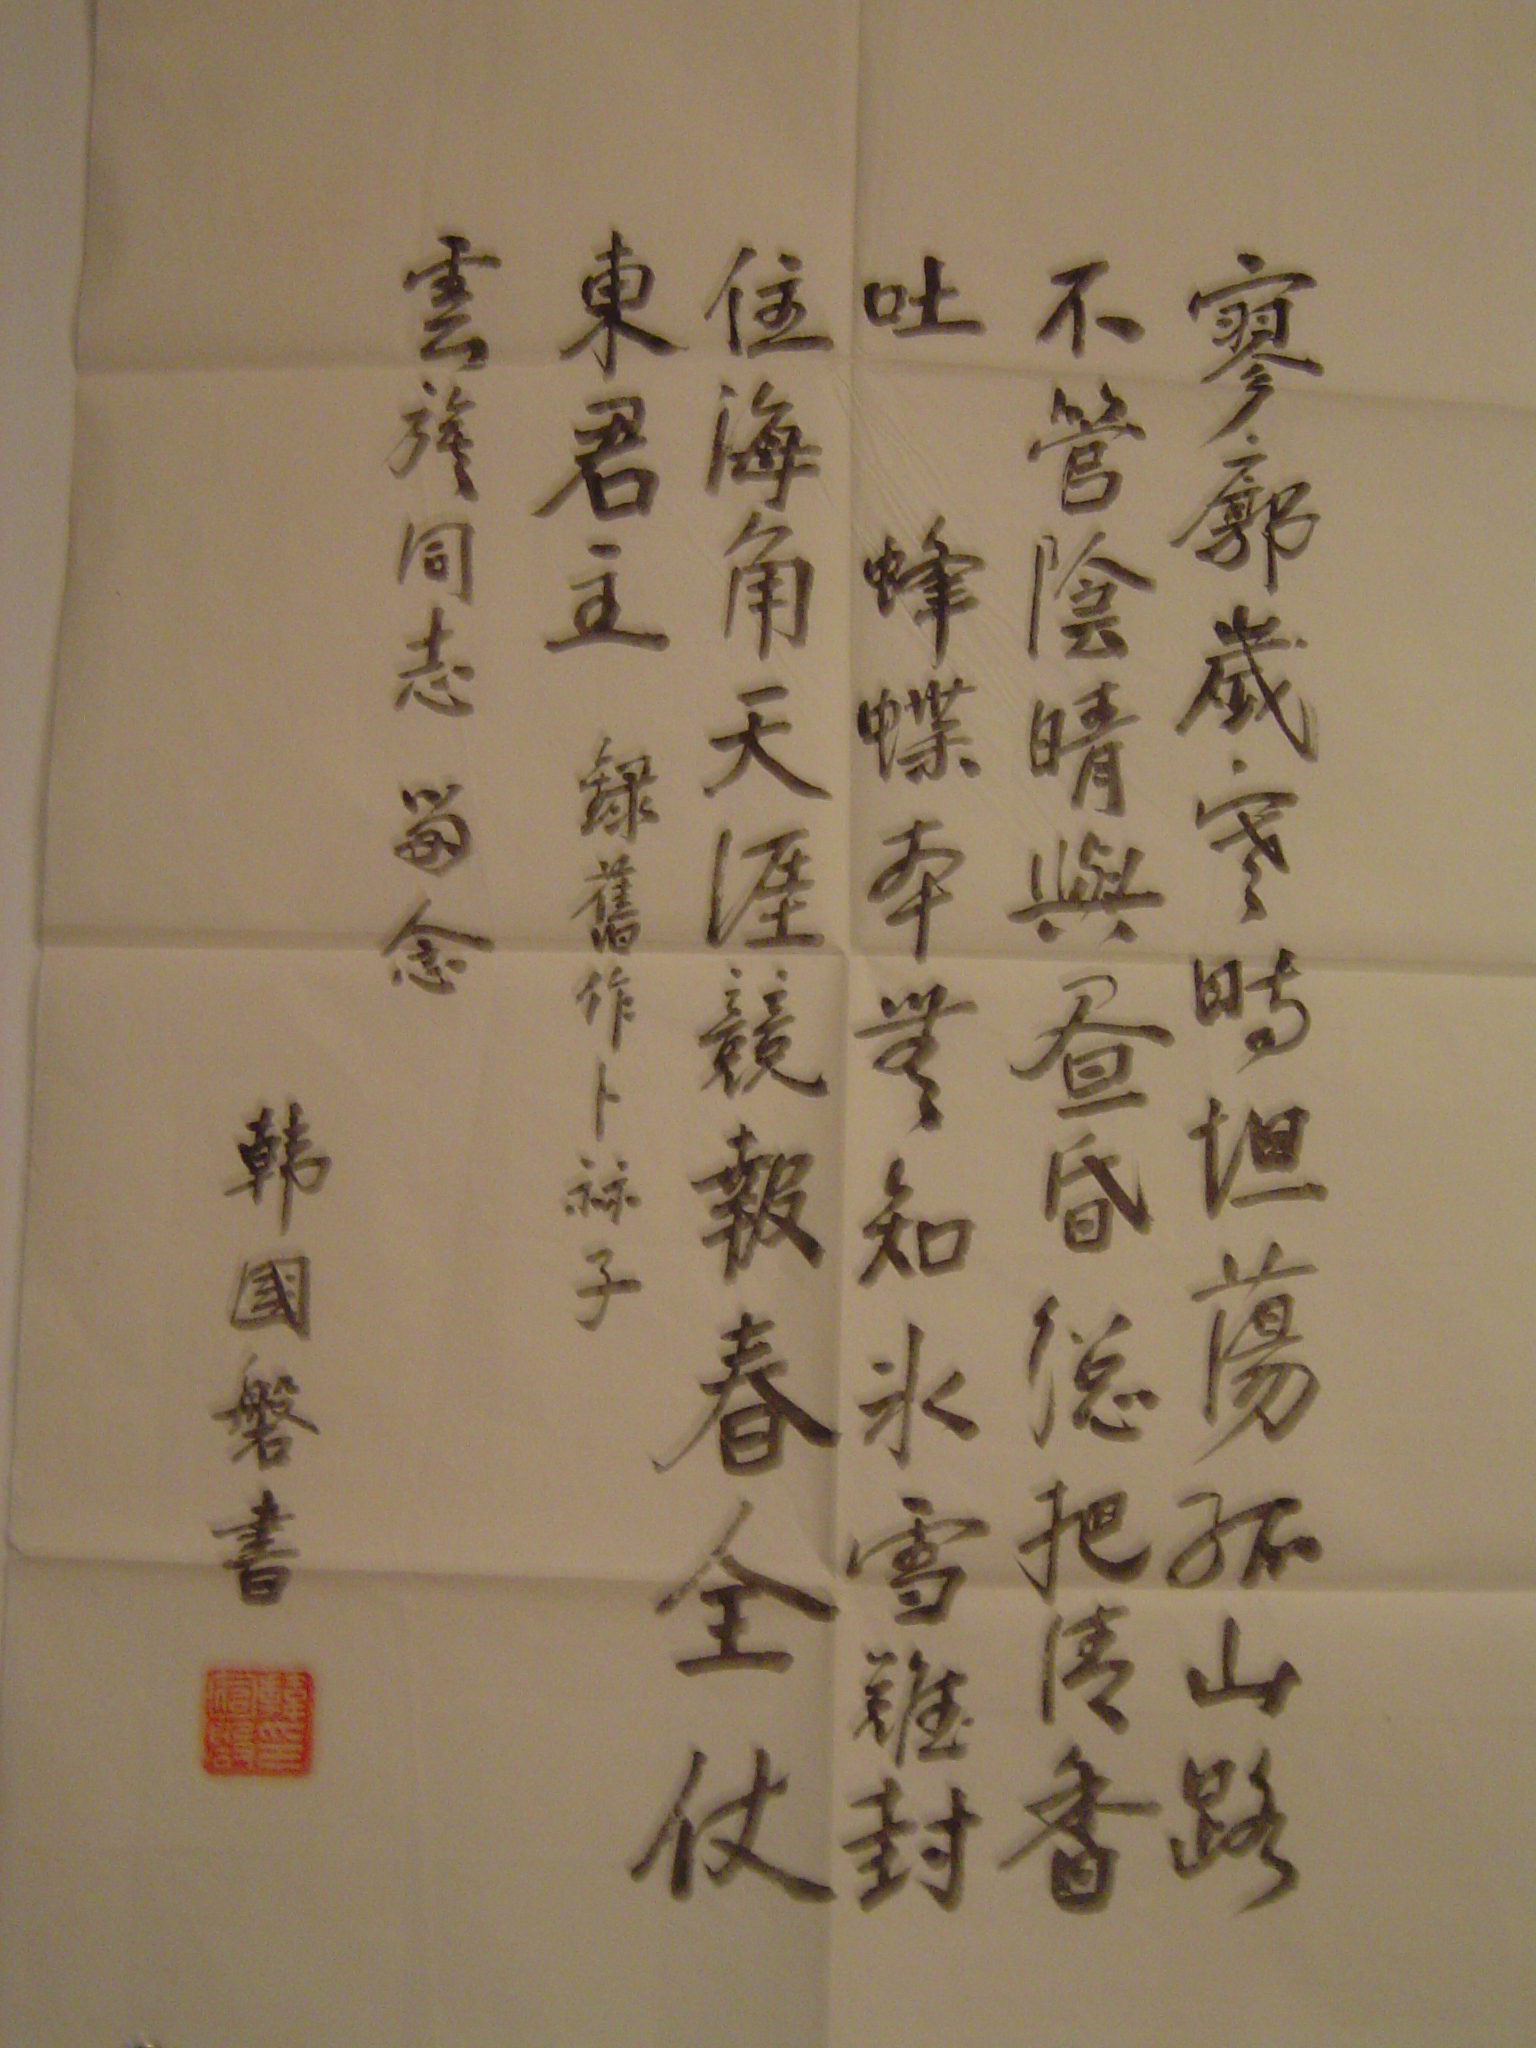 寥廓歲寒時坦蕩孤山路
不管陰晴與昼昏總把清香
吐 蜂蝶本無知冰雪難封
住海角天涯競報春全仗
東君主 録舊作卜祘子
雲旋同志 留念
韩國磐書